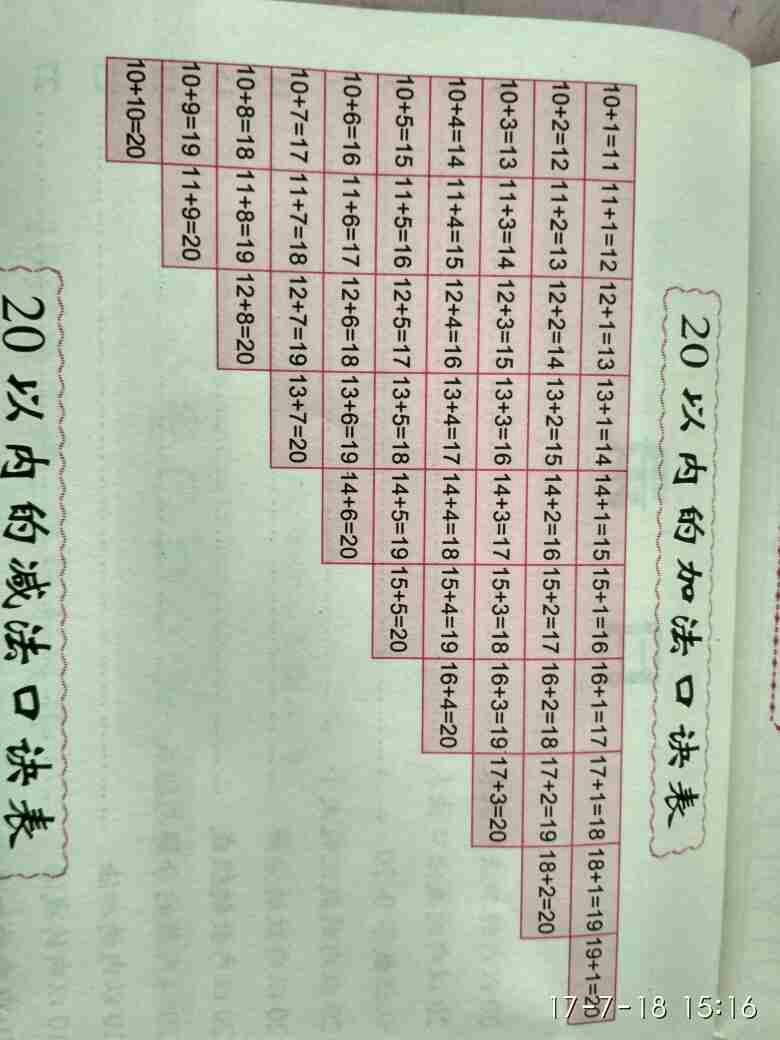 20以内的加法口诀表
10+1=11 11+1=12 12+1=13 13+1=14 14+1=15 15+1=16 16+1=17 17+1=18 18+1=19 19+1=20
10+2=12 11+2=13 12+2=14 13+2=15 14+2=16 15+2=17 16+2=18 17+2=19 18+2=20
10+3=13 11+3=14 12+3=15 13+3=16 14+3=17 15+3=18 16+3=19 17+3=20
10+4=14 11+4=15 12+4=16 13+4=17 14+4=18 15+4=19 16+4=20
10+5=15 11+5=16 12+5=17 13+5=18 14+5=19 15+5=20
10+6=16 11+6=17 12+6=18 13+6=19 14+6=20
10+7=17 11+7=18 12+7=19 13+7=20
10+8=18 11+8=19 12+8=20
10+9=19 11+9=20
10+10=20
20以内的减法口诀表
17-7-18 15:16